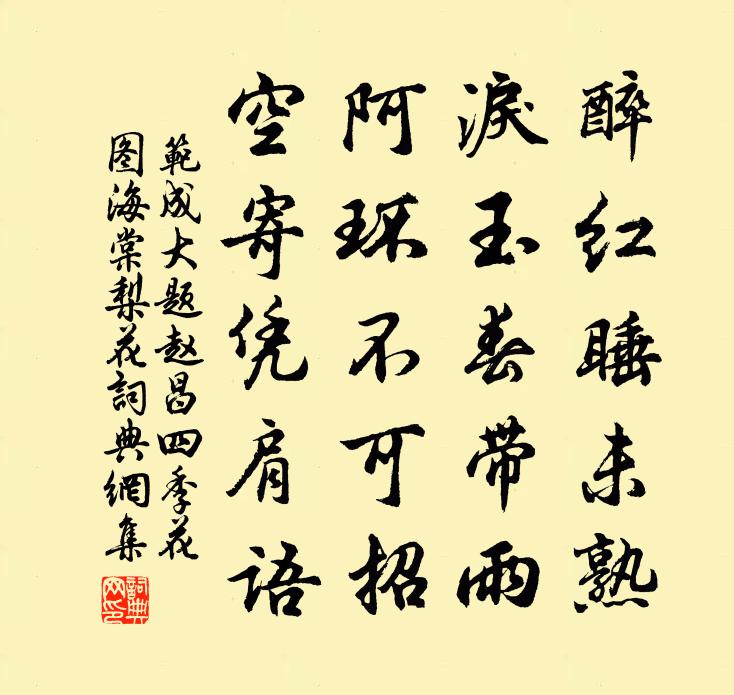 醉红睡未熟
淚玉春带雨
阿环不可招
空寄凭肩语
範成大题赵昌四季花
图海棠梨花詞典網集
詞典网印